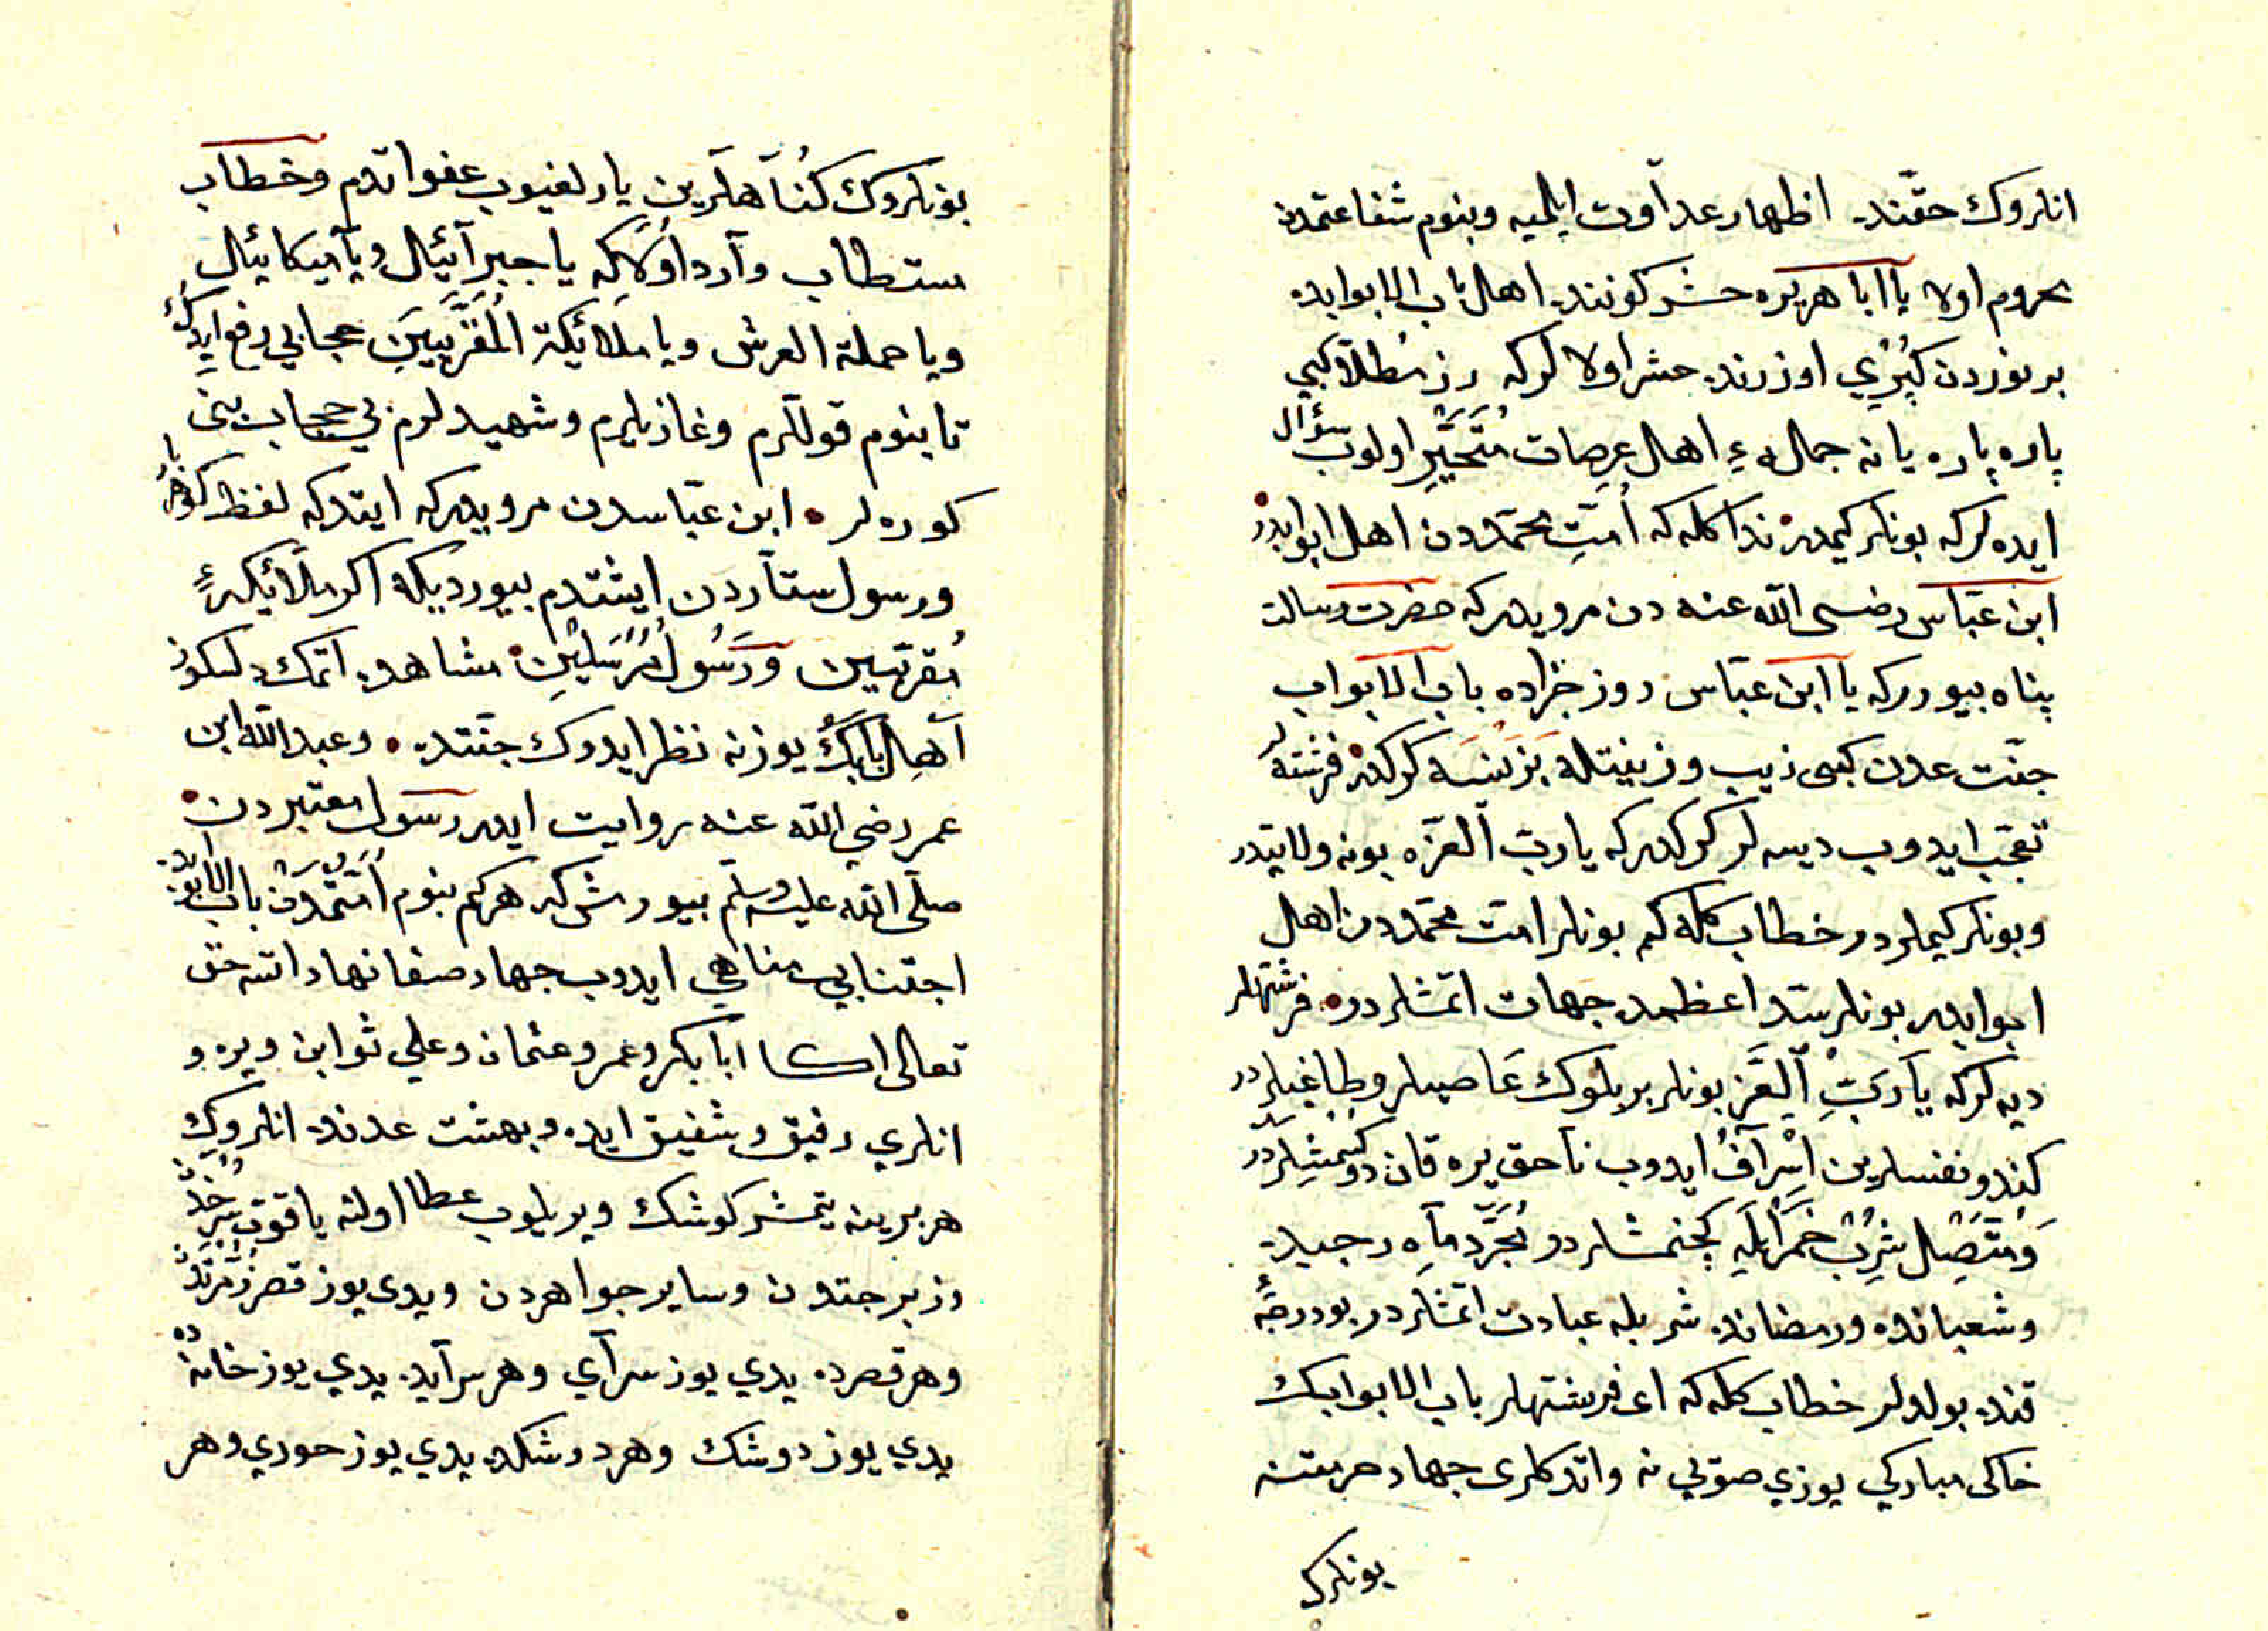 انلروك حقنده اظهار عداوت ايلميه وبنوم شفاعتمدن
محروم اولا يا ابا هريره حشر كوننده اهل باب الابوابده
بر نوردن كپري اوزرنده حشر اولا لركه رز مطلا كبي
پاره پاره يانه جمالهء اهل عرصات متحير اولوب سؤال
ايده لركه بونلر كيمدر ندا كله كه امت محمددن اهل ابوابدر
ابن عباس رضى الله عنه دن مرويدركه حضرت رسالت
پناه بيورركه يا ابن عباس روز جزاده باب الابواب
جنت عدن كبى زيب وزينتله بزنسه كركدر فرشته لر
تعجب ايدوب ديسه لر كركدركه يا رب العزه بونه ولايتدر
وبونلر كيملردر خطاب كله كم بونلر امت محمددن اهل
ابوابدر بونلر سد اعظمده جهات اتمشلردر فرشتهلر
ديه لركه يا رب العز بونلر بر بلوك عاصيلر وطاغيلردر
كندو نفسلرين اسراف ايدوب ناحق يره قان دوكمشلردر
ومتصل شرب خمر ايله كچنمشلردر مجرد ماه رجبده
وشعبانده ورمضانده شر بله عبادت اتمشلردر بو درجهء
قنده بولدلر خطاب كله كه اى فرشتهلر باب الابوابك
خاكى مباركي يوزي صوبي نه واتدكلرى جهاد حرمتنه
بونلرك
بونلروك كناهلرين يارلغيوب عفو اتدم وخطاب
مستطاب وارد اولاكه يا جبرائيل ويا ميكائيل
ويا حملة العرش ويا ملائكة المقربين حجابي رفع ايدك
تا بنوم قوللرم وغازيلرم وشهيدلرم بي حجاب بني
كوره لر ابن عباسدن مرويدركه ايتدكه لفظ كوهر بار
ورسول ستاردن ايشتدم بيورديكه اكر ملائكهء
مقربين ورسول مرسلين مشاهده اتمك دلسكوز
اهل بابك يوزنه نظر ايدوك جنتده وعبد الله ابن
عمر رضي الله عنه روايت ايدر رسول معتبردن
صلى الله عليه وسلم بيورمش كه هركم بنوم امتمدن باب الابوابده
اجتنابي مناهي ايدوب جهاد صفا نهاد اتسه حق
تعالى اكا ابا بكر وعمر وعثمان وعلي ثوابن ويره و
انلري رفيق وشفيق ايده وبهشت عدنده انلروك
هر برينه يتمش كوشك ويريلوب عطا اولنه ياقوت سرخدن
وزبرجتدن وساير جواهردن ويدى يوز قصر زمرتدن
وهر قصرده يدي يوز سراي وهر سرايده يدي يوز خانه ده
يدي يوز دوشك وهر دوشكده يدي يوز حوري وهر